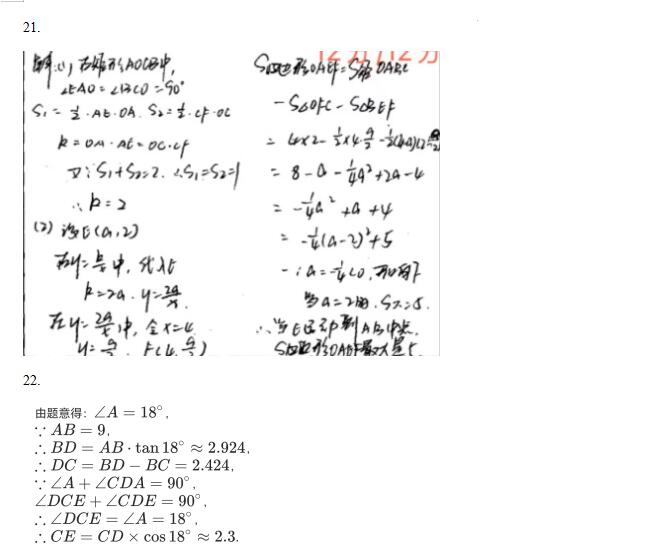 21.
解:(1)在矩形AOCB中,
∠EAO=∠BCO=90°
S₁=½·AE·OA. S₂=½·CF·OC
k=OA·AE=OC·CF
又∵S₁+S₂=2. ∴S₁=S₂=1
∴k=2
(2) 设E(a,2)
在y=k/x中, 代入E
k=2a. y=2a/x.
在y=2a/x中, 令x=4
y=a/2. F(4, a/2)
12分/12分
S四边形OAEF=S矩OABC
-S△OFC-S△BEF
=4×2-½×4·a/2-½(4-a)(2-a/2)
=8-a-¼a²+2a-4
=-¼a²+a+4
=-¼(a-2)²+5
∵a=-¼<0, 开口向下
当a=2时, S大=5.
∴当E运动到AB中点,
S四边形OAEF最大是5.
22.
由题意得: ∠A = 18°,
∵ AB = 9,
∴ BD = AB · tan 18° ≈ 2.924,
∴ DC = BD − BC = 2.424,
∵ ∠A + ∠CDA = 90°,
∠DCE + ∠CDE = 90°,
∴ ∠DCE = ∠A = 18°,
∴ CE = CD × cos 18° ≈ 2.3.